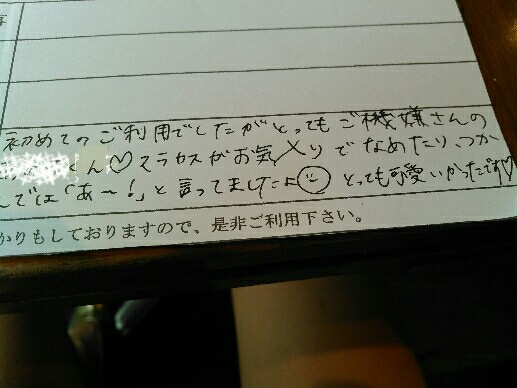 初めてのご利用でしたがとってもご機嫌さんの
くん♡スラセスがお気入りでなめたり、つか
んでは「あ〜!」と言ってましたよ☺ とっても可愛いかったです♡
かりもしておりますので、是非ご利用下さい。